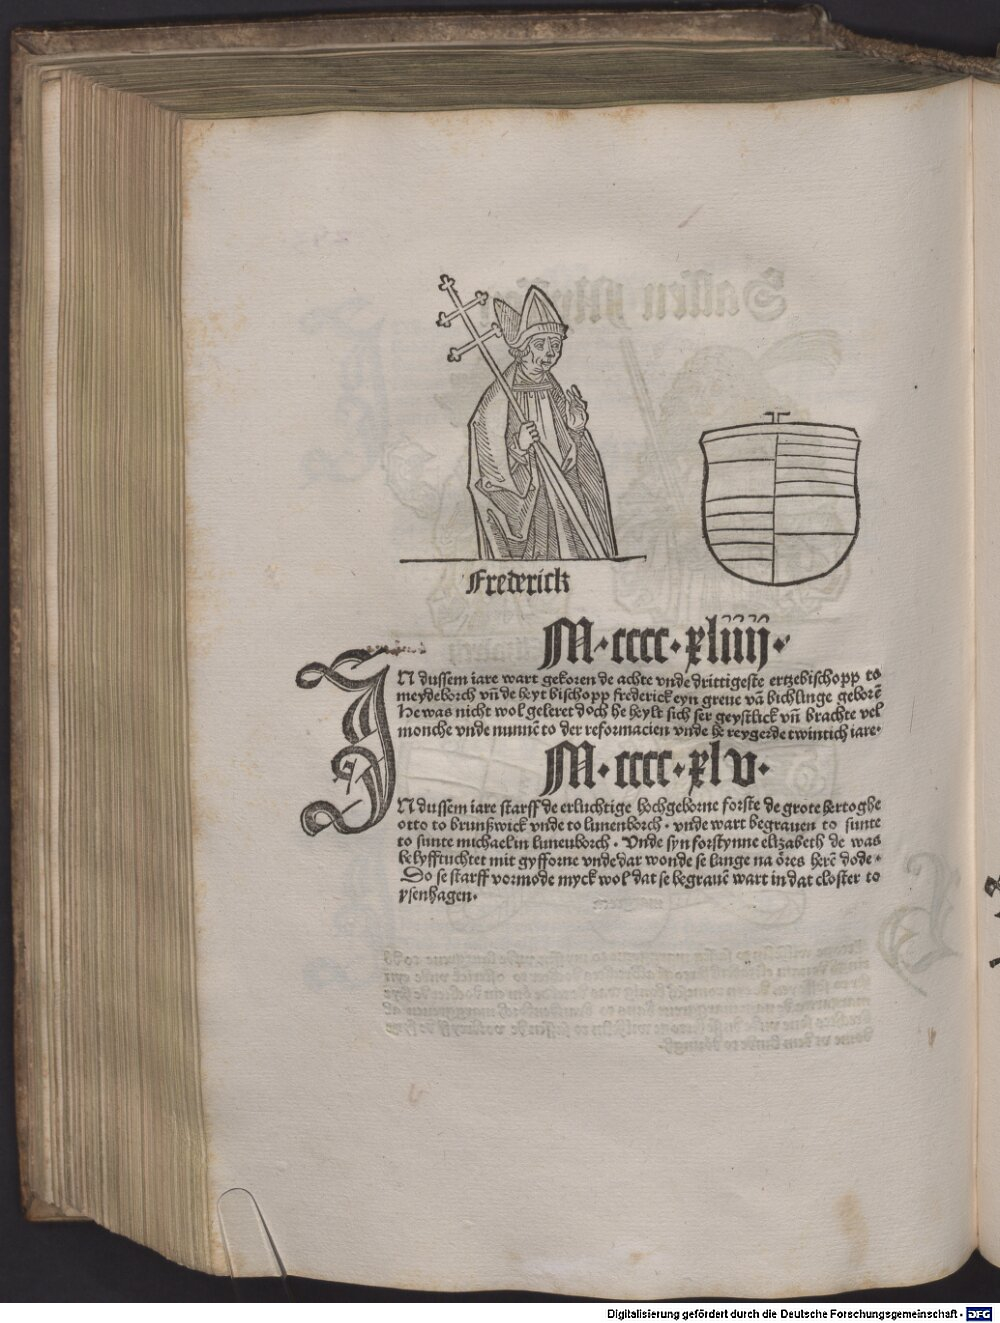 Frederick
M·cccc·xliiij·
IN dussem iare wart gekoren de achte vnde drittigeste ertzebischopp to
meydeborch vn̄ de heyt bischopp frederick eyn greue vā bichlinge geborē
He was nicht wol geleret doch he heylt sich ser geystlick vn̄ brachte vel
monche vnde nunnē to der reformacien vnde he reygerde twintich iare·
M·cccc·xlv·
IN dussem iare starff de erluchtige hochgeborne forste de grote hertoghe
otto to brunßwick vnde to lunenborch· vnde wart begrauen to sunte
to sunte michael in luneuborch· Vnde syn forstynne elizabeth de was
belyfftuchtet mit gyfforne vnde dar wonde se lange na ōres herē dode·
Do se starff vormode myck wol dat se begrauē wart in dat closter to
ysenhagen·
Digitalisierung gefördert durch die Deutsche Forschungsgemeinschaft - DFG